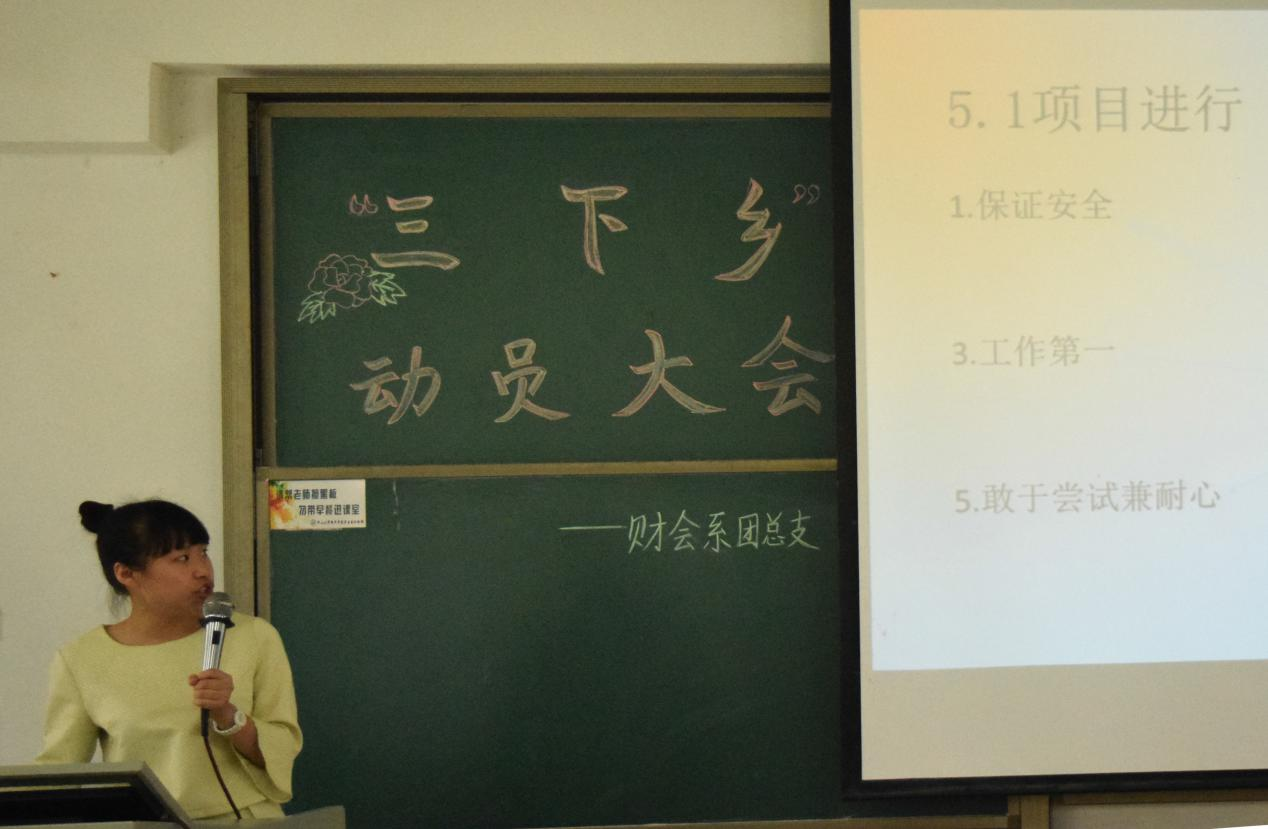 “三下乡”
动员大会
请帮老师擦黑板
勿带早餐进课室
——财会系团总支
5.1项目进行
1.保证安全
3.工作第一
5.敢于尝试兼耐心